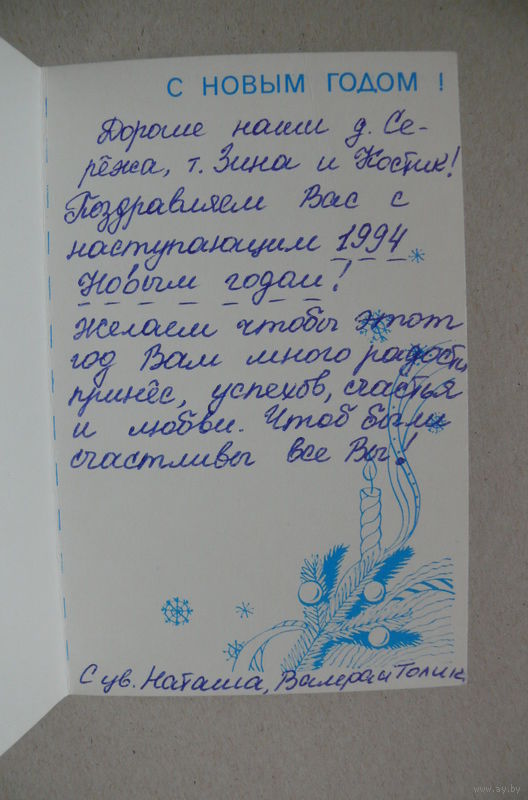 С НОВЫМ ГОДОМ !
Дорогие наши д. Се-
рёжа, т. Зина и Костик!
Поздравляем Вас с
наступающим 1994
Новым годом!
Желаем чтобы этот
год Вам много радости
принёс, успехов, счастья
и любви. Чтоб были
счастливы все Вы!
С ув. Наташа, Валера и Толик
www.ay.by